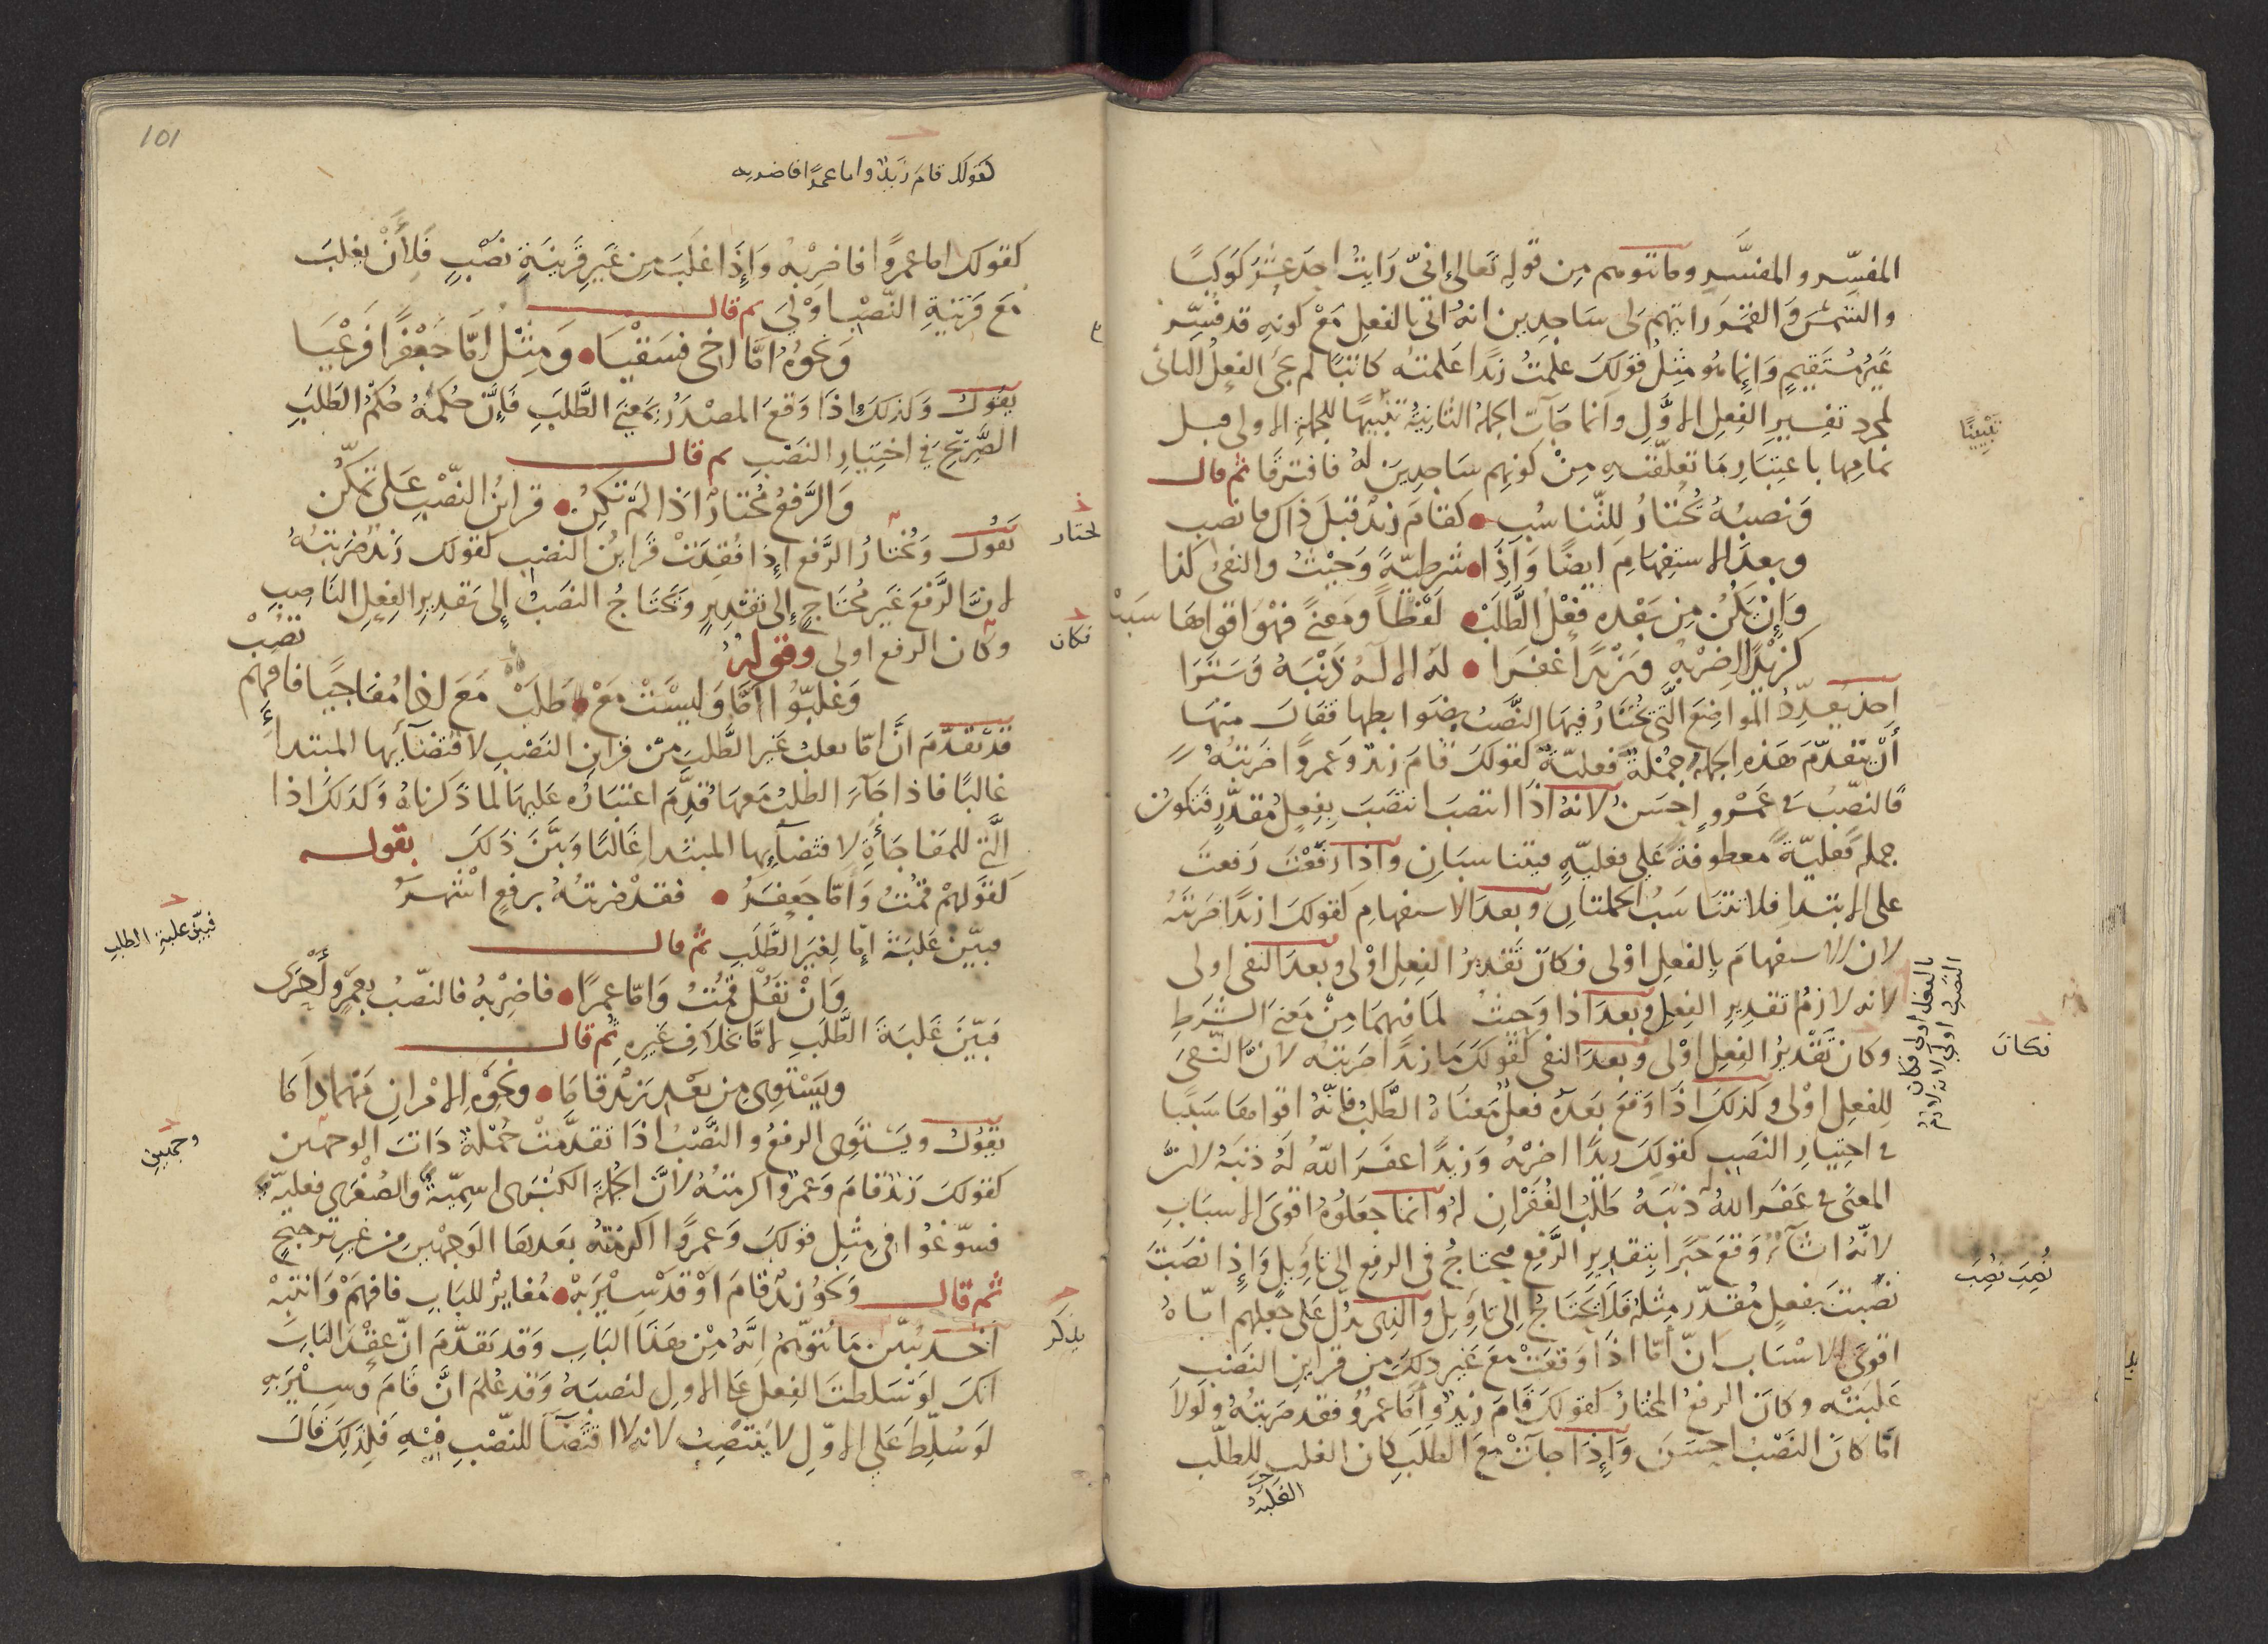 المفسِّر والمفسَّر وما توهم من قوله تعالى إنّي رَايتُ احد عشر كوكبًا
والشمسَ والقمَرَ رايتهم لى ساجدين انه اتى بالفعل مع كونه قد فُسِّر
غيرُ مُستَقيمٍ وَانما هو مثل قولك علمتُ زيدًا علمته كاتبًا لم يجئ الفعلُ الثانى
لمجرد تفسير الفعل الاوّل وانما جآت الجملة الثانية تنبيهًا للجملة الاولى قبل
تمامها باعتبار ما تعلّقت به من كونهم ساجدين لهُ فافترقا ثم قال
وَنصبُهُ يُختارُ للتّناسُبِ كقامَ زيدٌ قبلَ ذاك ما نصب
وبعدَ الاستفهامِ ايضًا وَاذَا شرطيّةً وَحيْثُ والنفىُ كذا
وَإنْ يَكُن مِن بَعْده فِعْلُ الطَّلَبْ لفْظًا ومَعنىً فهْوَ اقواها سَبَبْ
كزيْدًا اضرِبْهِ وزيْدًا غفَرا لهُ الالهُ ذَنْبَهُ وَسَتَرَا
اخذ يعدِّدُ المَواضِعَ الَّتى يُختارُ فيهَا النَّصبُ بضوابطها فقالَ منهَا
أنْ يتقدّمَ هَذه الجملةَ جُمْلةٌ فعليّةٌ كقولكَ قامَ زيدٌ وَعمرًا ضَربتُهُ
فالنصبُ فى عَمْروٍ احسَنُ لانهُ اذا انتصبَ انتصَبَ بفعلٍ مُقدّرٍ فتكونُ
جملةً فعليّةً معطوفةً على فعليّةٍ فيتناسبَانِ واذا رفعْتَ رَفعتَ
على الابتدا فلا تتنَاسَبُ الجملتانِ وبعدَ الاستفهامِ كقولكَ ازيدًا ضرَبتَهُ
لان الاستفهامَ بالفعل اوْلى فكانَ تَقديرُ الفعلِ اوْلى وبعدَ النفى اولى
لانه لازمُ تقديرِ الفعلِ وبعدَ اذا وحيثُ لمَا فيهمَا مِنْ مَعنى الشرطِ
وكان تَقْديرُ الفعلِ اوْلى وَبعدَ النفى كقولكَ مَا زيدًا ضربته لانَّ النّفىَ
للفعلِ اوْلى وكذلكَ اذَا وَقعَ بَعدَهُ فعلٌ مَعنَاهُ الطَّلَبُ فانّهُ اقواهَا سَببًا
فى اختيارِ النَصبِ كقولكَ زيدًا اضرْبهُ وَزيدًا غفَرَ اللهُ لهُ ذَنبَهُ لانَّ
المعنى فى غفَرَ اللهُ ذنبَهُ طَلَبُ الغُفرَانِ لهُ وَانما جعَلُوهُ اقوَى الاسبَابِ
لانّهُ انشآءٌ وَقعَ خبَرًا بتقديرِ الرَّفعِ فيحتاجُ فى الرفعِ الى تاوِيلٍ وَإذا نصَبتَ
نصَبتَ بفعلٍ مُقدّرٍ مثلهُ فلَا يَحتَاجُ إلى تاوِيلٍ والذى يدُلّ على جعلهم ايّاهُ
اقوَى الاسْبَابِ انّ أمّا اذا وَقعَتْ معَ غيرِ ذلكَ من قراينِ النصْبِ
غلبَتْه وكانَ الرفعُ المختارَ كقولكَ قامَ زيدٌ وأمَّا عمرٌو فقد ضربتُهُ ولولا
امّا كانَ النَصْبُ احسَنَ وَإذَا جآتْ معَ الطلَبِ كان الغلب للطلَب
الغَلبَةُ
تَبْيِينًا
فكان
بالفعل اولى فكان
النصب اولى لانه لازم
نُصِبَ نُصِبَ
101
كقولك قام زيدٌ واما عمرًا فاضربه
كقولك اما عمرًا فاضرِبْهُ وَإذَا غلَبَ مِن غيرِ قرينةِ نصْبٍ فَلأَنْ يغلبَ
معَ قرينةِ النّصْبِ اوْلى ثم قال
وَنحوُهُ امَّا اخى فسَقْيَا وَمِثْلُ أمّا جَعْفرًا فرَعْيَا
يقول وَكذلكَ اذَا وَقعَ المصْدَرُ بمَعنَى الطَّلبِ فَإنَّ حُكمَهُ حُكْمُ الطَلبِ
الصَّريحِ فى اختيارِ النَصْبِ ثم قال
وَالرَّفعُ مُختَارٌ اذا لمْ تَكنِ قراينُ النصْبِ عَلى تمَكّنِ
يَقُول وَيُختارُ الرَّفعُ إذا فُقِدَتْ قراينُ النصْب كقولك زيدٌ ضربتُهُ
لانّ الرَّفعَ غير مُحتاجٍ إلى تقديرٍ ويَحتَاجُ النصبُ إلى تقديرِ الفِعلِ النَاصِبِ
وكان الرفع اولى وقوله
وَغلّبُوا امَّا وَليسَتْ مَعْ طَلَبْ مَعَ اذا مُفاجيًا فافهم تُصِبْ
قد تقدَّمَ انَّ امّا تغلبُ غيرَ الطَّلبِ منْ قراينِ النَصْبِ لاقتضآيها المبتدأَ
غالبًا فاذا جَآءَ الطلبُ معهَا قُدِّمَ اعتبَارُه عَليهَا لما ذكرناهُ وَكذلكَ اذا
الَّتى للمفاجَأَةِ لاقتضآئها المبتدا غَالبًا وَبيَّنَ ذلكَ بقوله
كقوْلهمْ قُمتُ وَأمّا جَعفَرُ فقدْ ضربتُهُ برفعٍ اشتهَرَ
فبيّن غلبَةَ إمّا لِغيرِ الطَّلَبِ ثم قال
وَانْ تقُلْ قُمتُ وَامّا عمرًا فاضرِبْهُ فالنصْبُ بعمْرٍو أحْرَى
فبيّنَ غَلبَةَ الطَّلبِ لامَّا بخلافِ غيرِه ثُم قال
ويَسْتوى من بَعْد زيدٌ قامَا ونحوِهِ الامْرانِ مَهما ذامَا
يقول ويَستوِى الرفعُ والنَّصْبُ اذا تقدَّمَتْ جُمْلةٌ ذاتَ الوجهين
كقولكَ زيدٌ قامَ وَعَمرٌو اكرمتُهُ لانَّ الجملةَ الكُبْرَى اسميّةٌ وَالصُغْرَى فعليّةٌ
فسوّغوا فى مثلِ قولكَ وَعَمرًا اكرمْتهُ بَعدهَا الوَجهينِ من غيرِ ترجيحٍ
ثم قال وَنحوُ زيدٌ قامَ اوْ قدْ سِيْرَ بِهْ مُغايرٌ للبَابِ فافهَمْ وَانتبِهْ
اخذ يُبيّن مَا يُتوَهّمُ انّهُ مِنْ هذا البَابِ وَقد تقدَّمَ انّ عِقْدَ البَابَ
انكَ لوْ سَلطتَ الفعلَ على الاولِ لنصبَهُ وَقد عُلمَ انَّ قامَ وسِيْرَ بهِ
لَو سُلِّطَ عَلى الاوّلِ لا يَنتصِبُ لانه لا اقتضَآ للنّصْبِ فيْهِ فلذلكَ قالَ
يختار
فكان
فبيّن غلبةِ الطلبِ
وجهين
يذكر